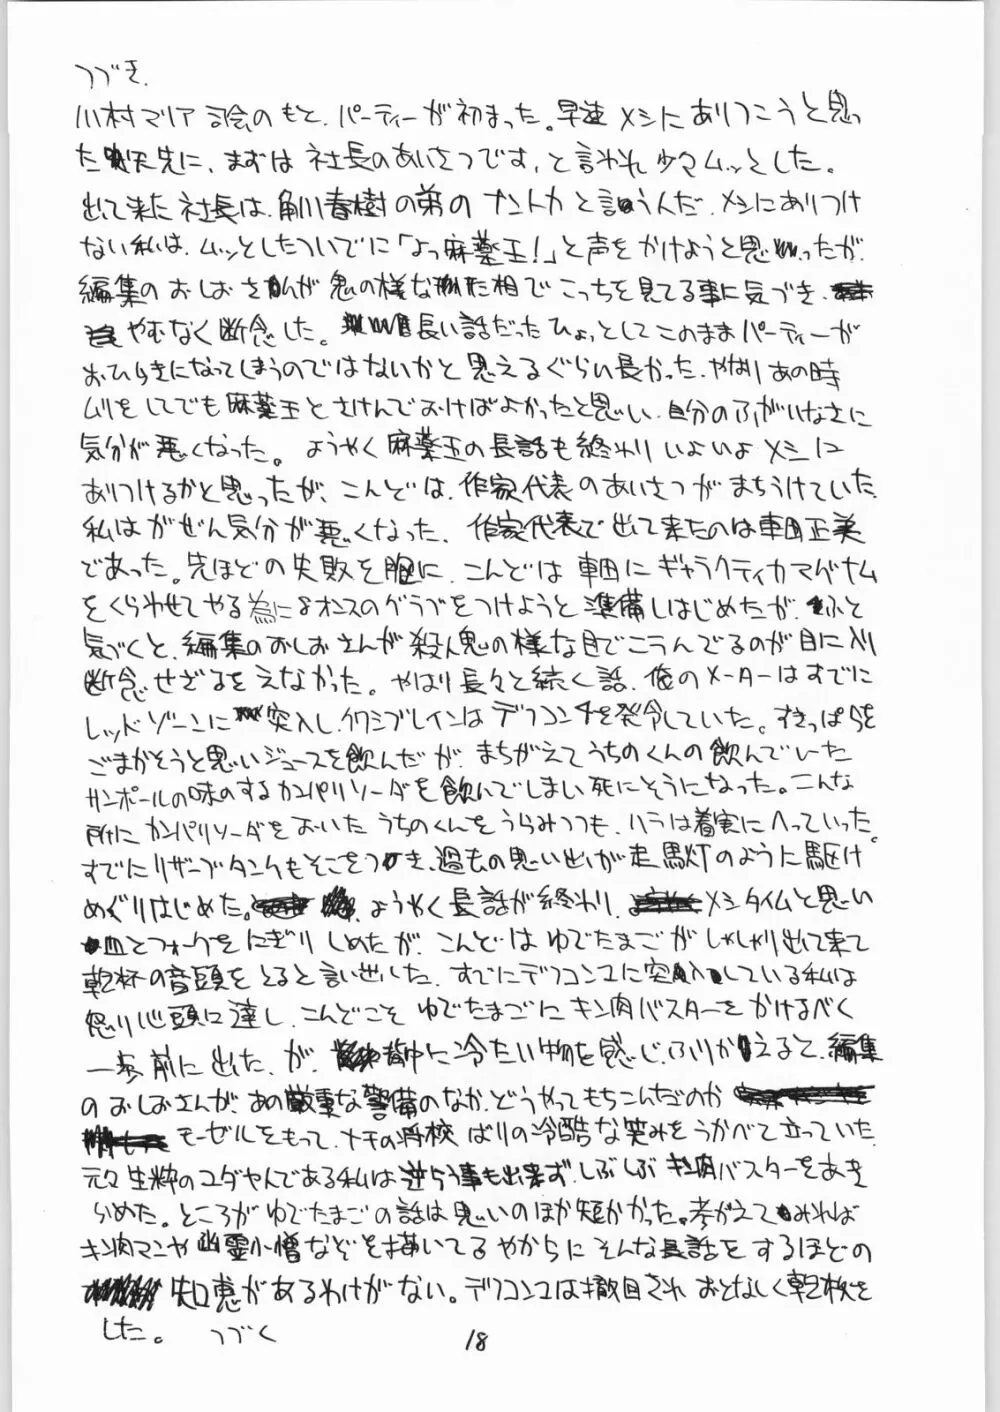 つづき.
川村マリア司会のもと、パーティーが初まった。早速メシにありつこうと思っ
た矢先に、まずは社長のあいさつです、と言われ少々ムッとした。
出て来た社長は、角川春樹の弟のナントカと言うんだ、メシにありつけ
ない私は、ムッとしたついでに「よっ麻薬王!」と声をかけようと思ったが、
編集のおしおさんが鬼の様な相でこっちを見てる事に気づき、
やむなく断念した。長い話だったひょっとしてこのままパーティーが
おひらきになってしまうのではないかと思えるぐらい長かった、やはりあの時
ムリをしてでも麻薬王とさけんでおけばよかったと思い、自分のふがいなさに
気分が悪くなった。ようやく麻薬王の長話も終わりいよいよメシに
ありつけるかと思ったが、こんどは、作家代表のあいさつがまちうけていた、
私はがぜん気分が悪くなった、作家代表で出て来たのは車田正美
であった。先ほどの失敗を胸に、こんどは車田にギャラクティカマグナム
をくらわせてやる為に8オンスのグラブをつけようと準備しはじめたが、ふと
気づくと、編集のおしおさんが殺人鬼の様な目でこうんでるのが目に入り
断念せざるをえなかった。やはり長々と続く話、俺のメーターはすでに
レッドゾーンに突入し、イワシブレインはデフコン4を発令していた。すきっぱらを
ごまかそうと思いジュースを飲んだが、まちがえてうちのくんの飲んでいた
サンポールの味のするカンパリソーダを飲んでしまい死にそうになった。こんな
所にカンパリソーダをおいたうちのくんをうらみつつも、ハラは着実にへっていった。
すでにリザーブタンクもそこをつき、過去の思い出が走馬灯のように駆け
めぐりはじめた。ようやく長話が終わり、メシタイムと思い
皿とフォークをにぎりしめたが、こんどはゆでたまごがしゃしゃり出て来て
乾杯の音頭をとると言い出した、すでにデフコン2に突入している私は
怒り心頭に達し、こんどこそゆでたまごにキン肉バスターをかけるべく
一歩前に出た、が、背中に冷たい物を感じ、ふりかえると、編集
のおしおさんが、あの厳重な警備のなか、どうやってもちこんだのか
モーゼルをもって、ナチの将校ばりの冷酷な笑みをうかべて立っていた、
元々生粋のユダヤんである私は逆らう事も出来ず、しぶしぶキン肉バスターをあき
らめた。ところがゆでたまごの話は思いのほか短かかった。考がえてみれば
キン肉マンや幽霊小僧などを描いてるやからにそんな長話をするほどの
知恵があるわけがない。デフコン2は撤回されおとなしく乾杯を
した。つづく
18